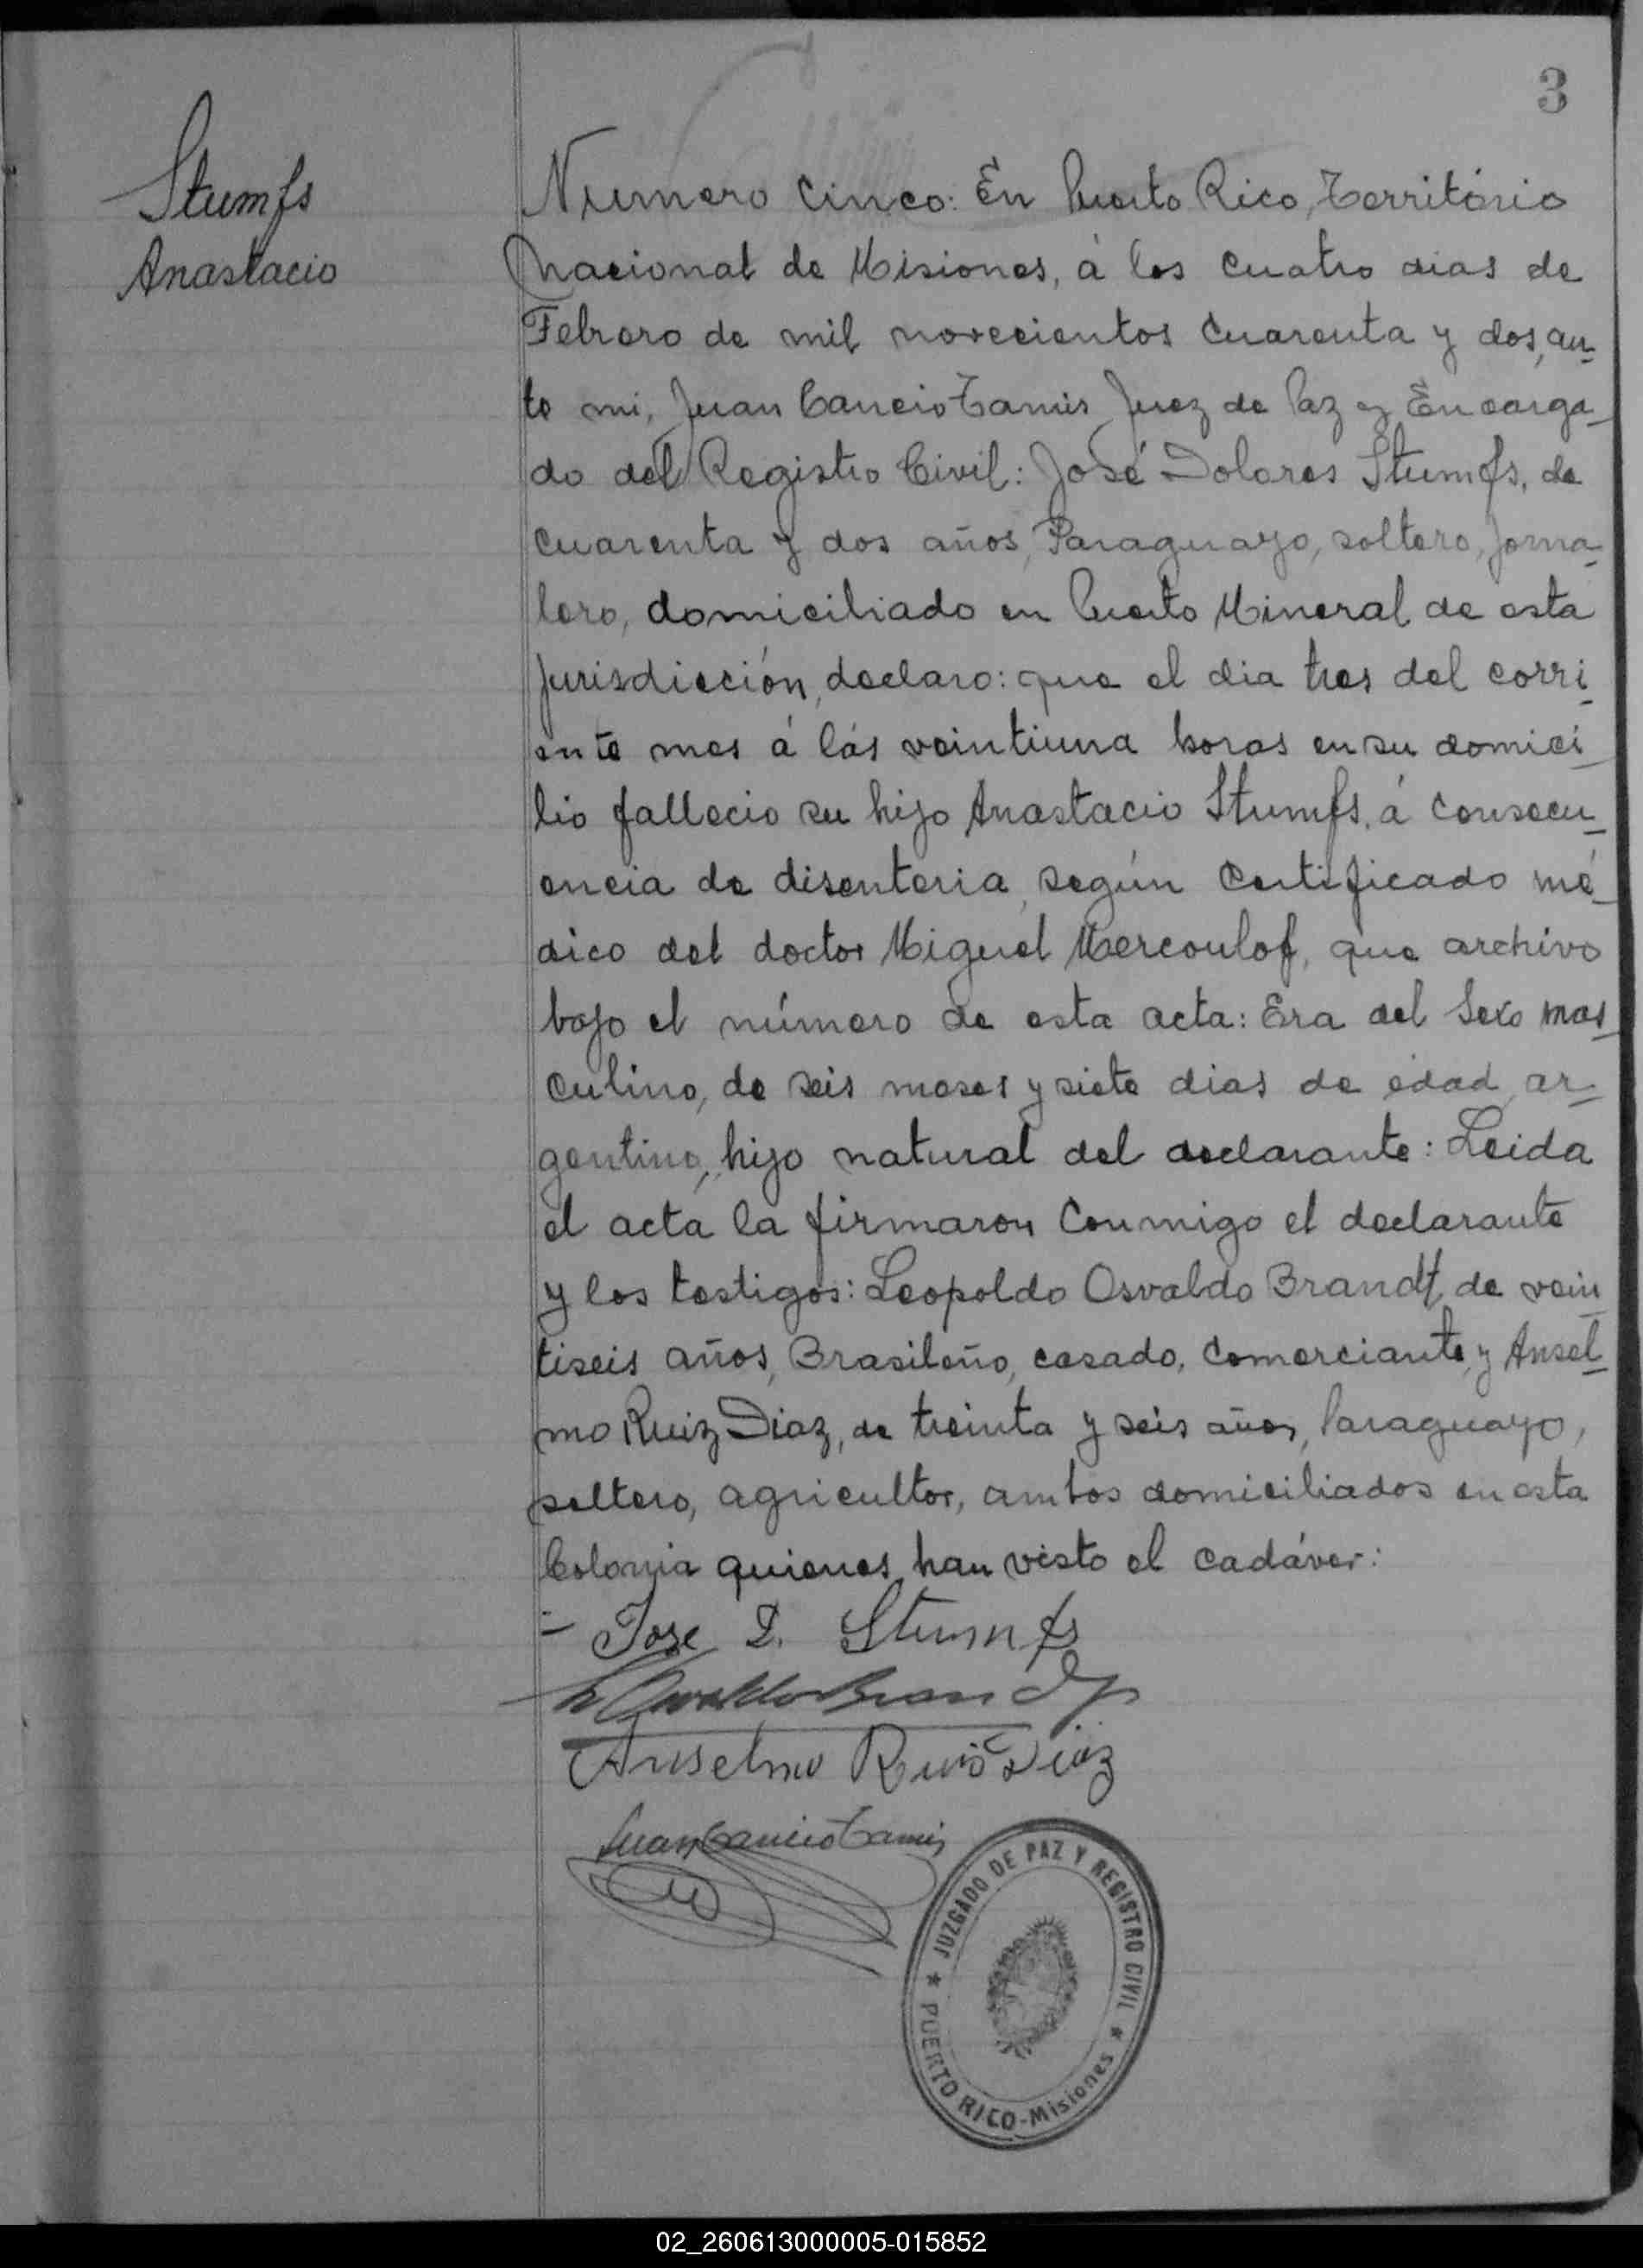 3
Stumfs
Anastacio
Numero Cinco: En Puerto Rico, Território
Nacional de Misiones, á los cuatro dias de
Febrero de mil novecientos cuarenta y dos, an-
te mi, Juan Cancio Tamis Juez de Paz y Encarga-
do del Registro Civil: José Dolores Stumfs, de
cuarenta y dos años, Paraguayo, soltero, jorna-
lero, domiciliado en Puerto Mineral de esta
Jurisdicción, declaro: que el dia tres del corri-
ente mes á lás veintiuna horas en su domici-
lio fallecio su hijo Anastacio Stumfs, á consecu-
encia de disenteria, según Certificado mé-
dico del doctor Miguel Mercoulof, que archivo
bajo el número de esta acta: Era del Sexo mas-
culino, de seis meses y siete dias de edad, ar-
gentino, hijo natural del declarante: Leida
el acta la firmaron Conmigo el declarante
y los testigos: Leopoldo Osvaldo Brandt, de vein-
tiseis años, Brasileño, casado, Comerciante, y Ansel-
mo Ruiz Diaz, de treinta y seis años, Paraguayo,
soltero, agricultor, ambos domiciliados en esta
Colonia quienes han visto el cadáver:
- Jose D. Stumfs
L Osvaldo Brandt
Anselmo Ruis Diaz
Juan Cancio Tamis
JUZGADO DE PAZ Y REGISTRO CIVIL
★ PUERTO RICO-Misiones ★
02_260613000005-015852